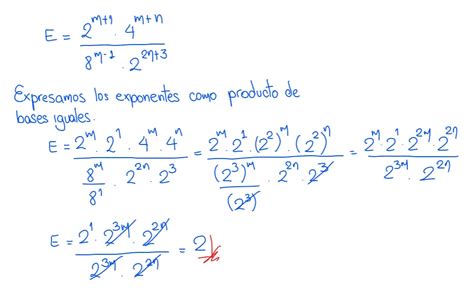 E = 2^(m+1) · 4^(m+n) / 8^(m-1) · 2^(2n+3)
Expresamos los exponentes como producto de
bases iguales.
E = 2^m · 2^1 · 4^m · 4^n / (8^m / 8^1) · 2^(2n) · 2^3 = 2^m · 2^1 · (2^2)^m · (2^2)^n / ((2^3)^m / (2^3)) · 2^(2n) · 2^3 = 2^m · 2^1 · 2^(2m) · 2^(2n) / 2^(3m) · 2^(2n)
E = 2^1 · 2^(3m) · 2^(2n) / 2^(3m) · 2^(2n) = 2